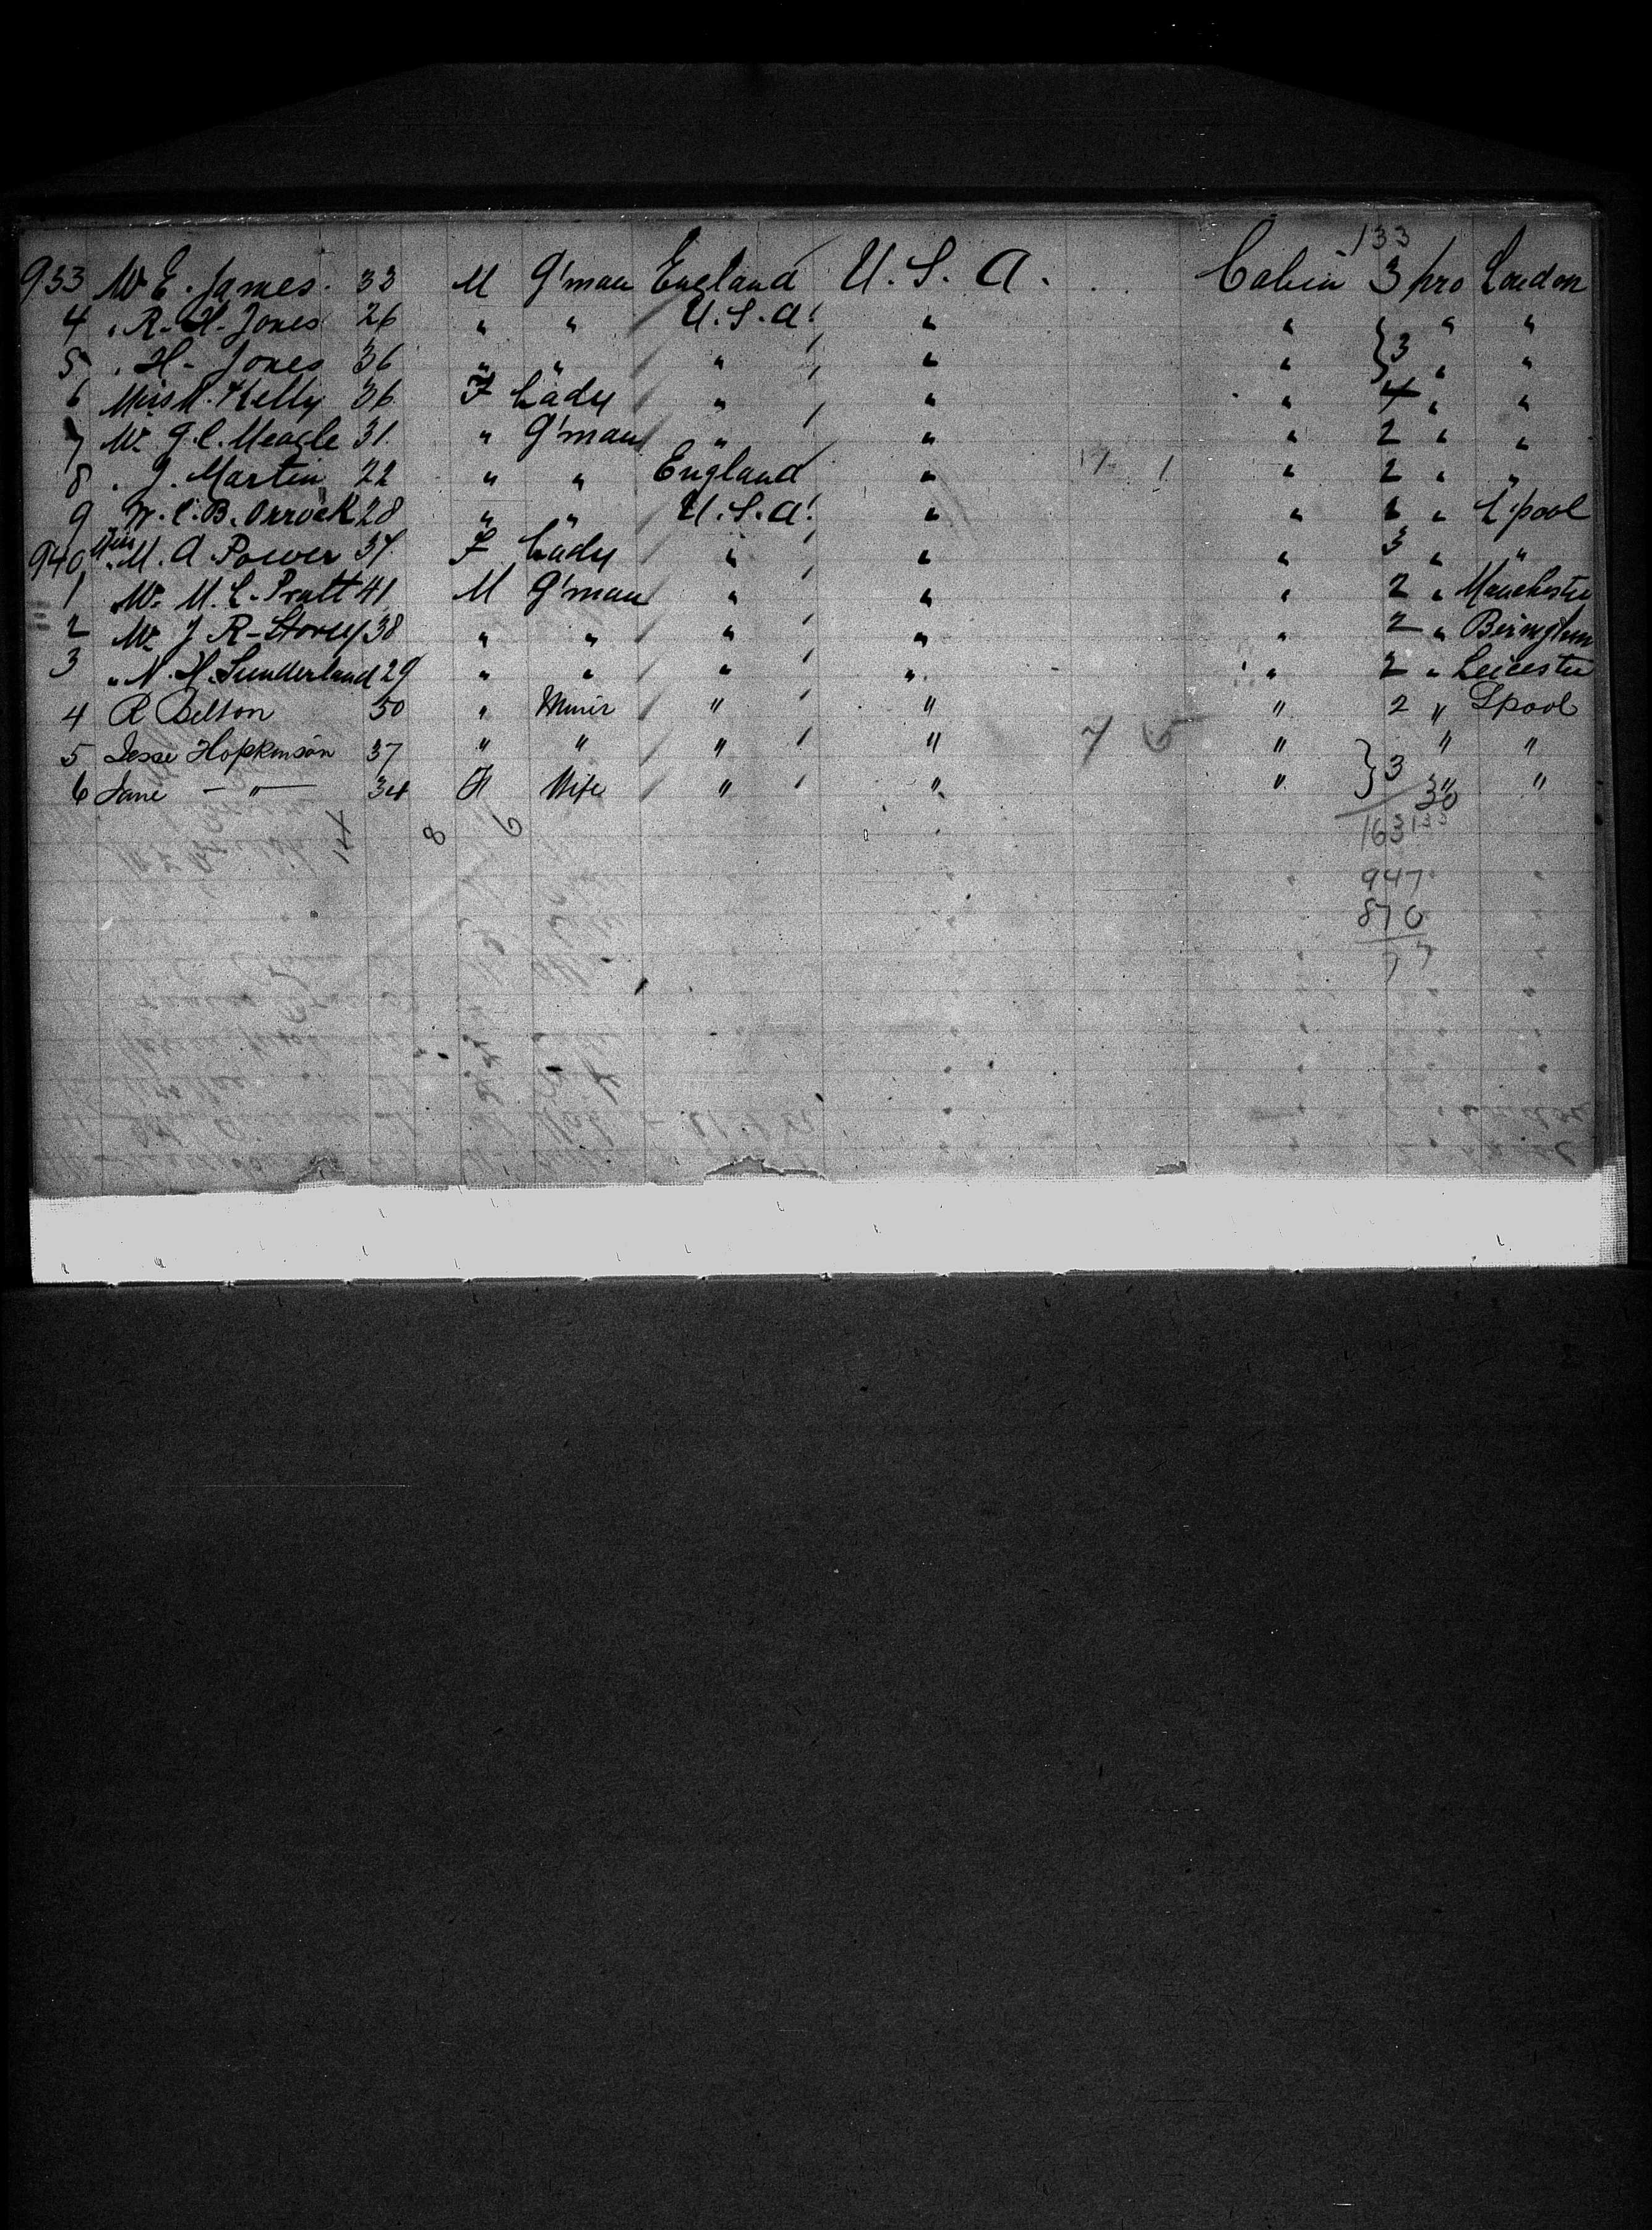 133
933 Mr E. James. 33 M G'man England U.S.A. Cabin 3 pro London
4 " R. H. Jones 26 " " U.S.A. " " } " "
5 " H. Jones 36 " " " " " } 3 " "
6 Miss M. Kelly 36 F Lady " " " 4 " "
7 Mr. G. C. Meagle 31 " G'man " " " 2 " "
8 " J. Martin 22 " " England " " 2 " "
9 " C. B. Orrock 28 " " U.S.A. " " 1 " L'pool
940 Miss M. A Power 37 F Lady " " " 3 " "
1 Mr. M. L. Pratt 41 M G'man " " " 2 " Manchester
2 Mr J R- Storey 38 " " " " " 2 " Birmghm
3 " N. H. Sunderland 29 " " " " " 2 " Leicester
4 R Belton 50 " Miner " " " 2 " Lpool
5 Jesse Hopkinson 37 " " " " " } " "
6 Jane — " — 34 F Wife " " " } 3 " "
30
14 8 6 163 133
947
870
77